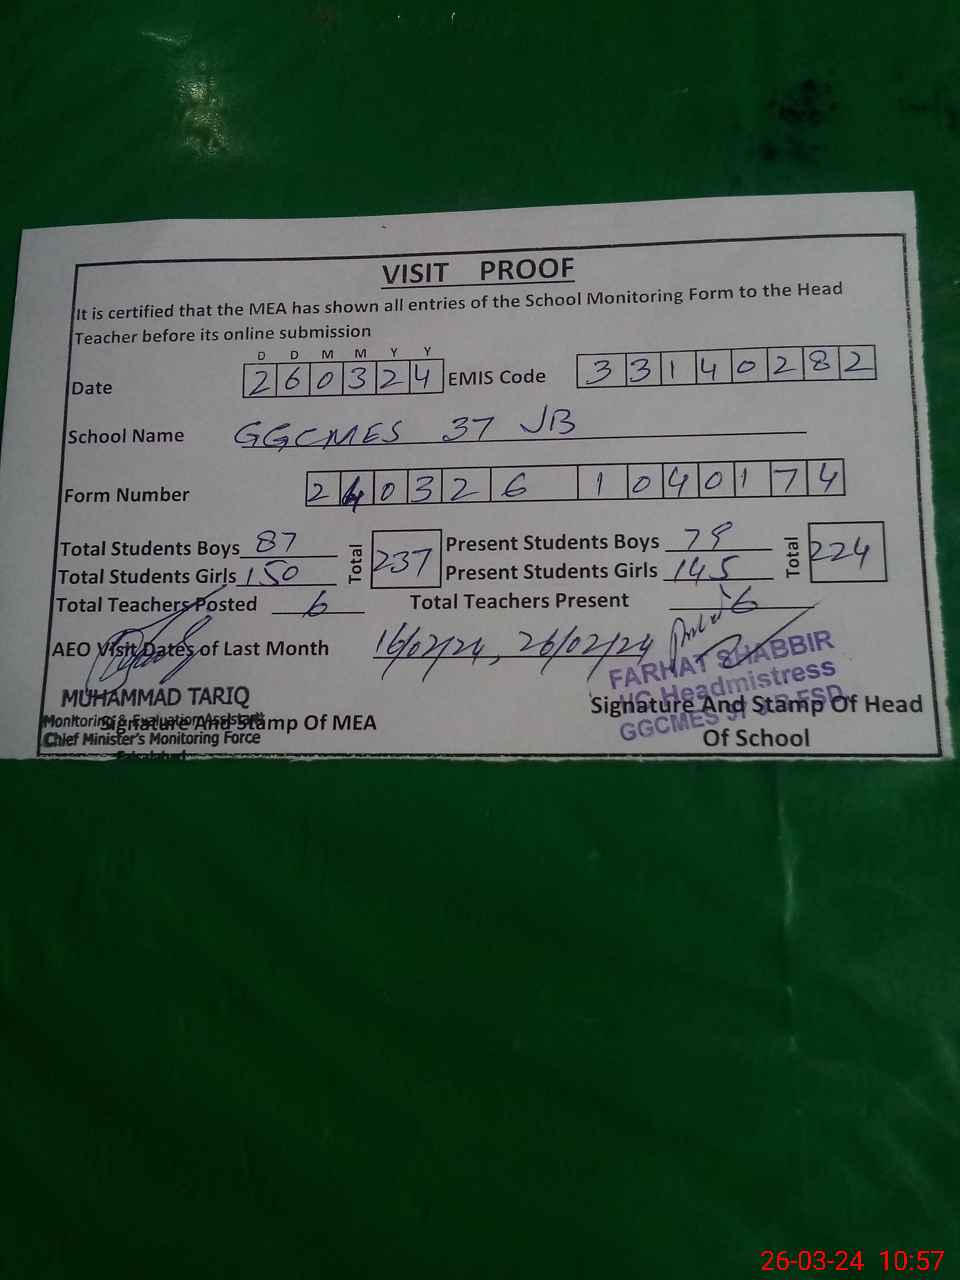 VISIT PROOF
It is certified that the MEA has shown all entries of the School Monitoring Form to the Head
Teacher before its online submission
D D M M Y Y
Date 2 6 0 3 2 4 EMIS Code 3 3 1 4 0 2 8 2
School Name GGCMES 37 JB
Form Number 2 4 0 3 2 6 1 0 4 0 1 7 4
Total Students Boys 87 Total 237 Present Students Boys 79 Total 224
Total Students Girls 150 Present Students Girls 145
Total Teachers Posted 6 Total Teachers Present 6
AEO Visit Dates of Last Month 16/02/24, 26/02/24
FARHAT SHABBIR
Headmistress
GGCMES
MUHAMMAD TARIQ
Monitoring & Evaluation Assistant
Chief Minister's Monitoring Force
Faisalabad
Signature And Stamp Of MEA
Signature And Stamp Of Head
Of School
26-03-24 10:57